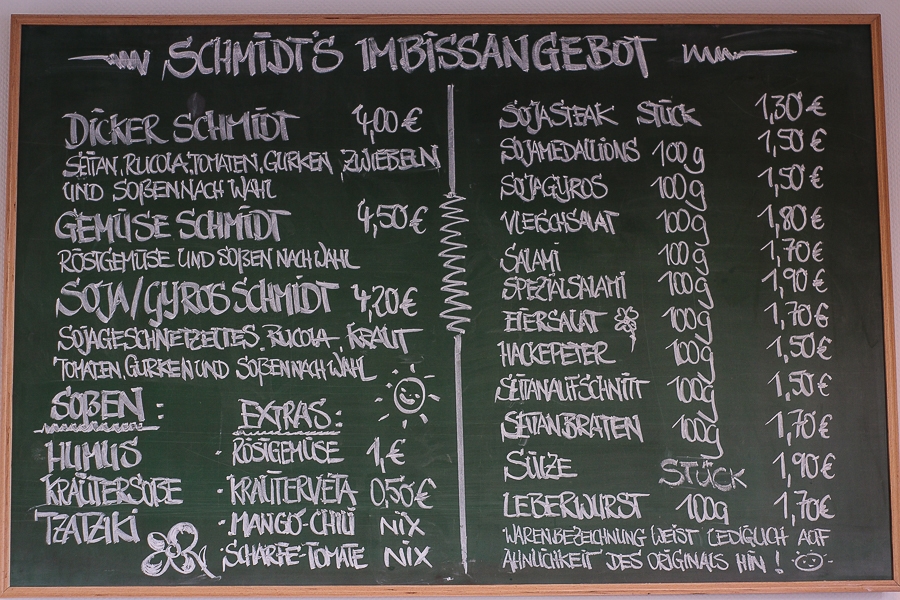 SCHMIDT'S IMBISSANGEBOT
DICKER SCHMIDT 4,00 €
SEITAN, RUCOLA, TOMATEN, GURKEN, ZWIEBELN
UND SOßEN NACH WAHL
GEMÜSE SCHMIDT 4,50 €
RÖSTGEMÜSE UND SOßEN NACH WAHL
SOJA/GYROS SCHMIDT 4,20 €
SOJAGESCHNETZELTES, RUCOLA, KRAUT
TOMATEN, GURKEN UND SOßEN NACH WAHL
SOßEN:
HUMUS
KRÄUTERSOßE
TZATZIKI
EXTRAS:
· RÖSTGEMÜSE 1,€
· KRÄUTERVETA 0,50€
· MANGO-CHILI NIX
· SCHARFE-TOMATE NIX
SOJASTEAK STÜCK 1,30 €
SOJAMEDALLIONS 100g 1,50 €
SOJAGYROS 100g 1,50 €
VLEISCHSALAT 100g 1,80 €
SALAMI 100g 1,70 €
SPEZIALSALAMI 100g 1,90 €
EIERSALAT 100g 1,70 €
HACKEPETER 100g 1,50 €
SEITANAUFSCHNITT 100g 1,50 €
SEITANBRATEN 100g 1,70 €
SÜLZE STÜCK 1,90 €
LEBERWURST 100g 1,70 €
WARENBEZEICHNUNG WEIST LEDIGLICH AUF
ÄHNLICHKEIT DES ORIGINALS HIN!